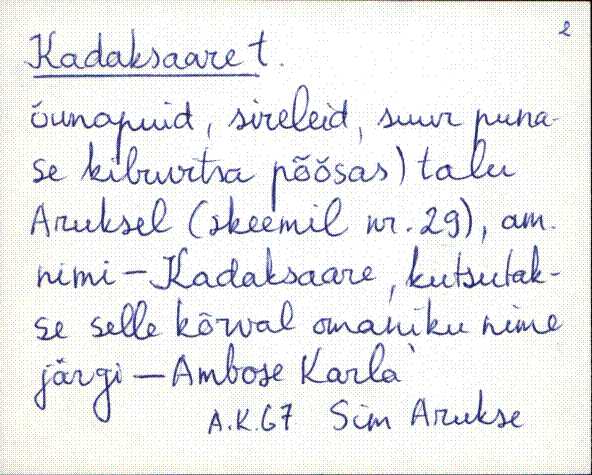 2
Kadaksaare t.
õunapuid, sireleid, suur puna-
se kibuvitsa põõsas) talu
Aruksel (skeemil nr. 29), am.
nimi – Kadaksaare, kutsutak-
se selle kõrval omaniku nime
järgi – Ambose Karla`
A.K.67 Sim Arukse